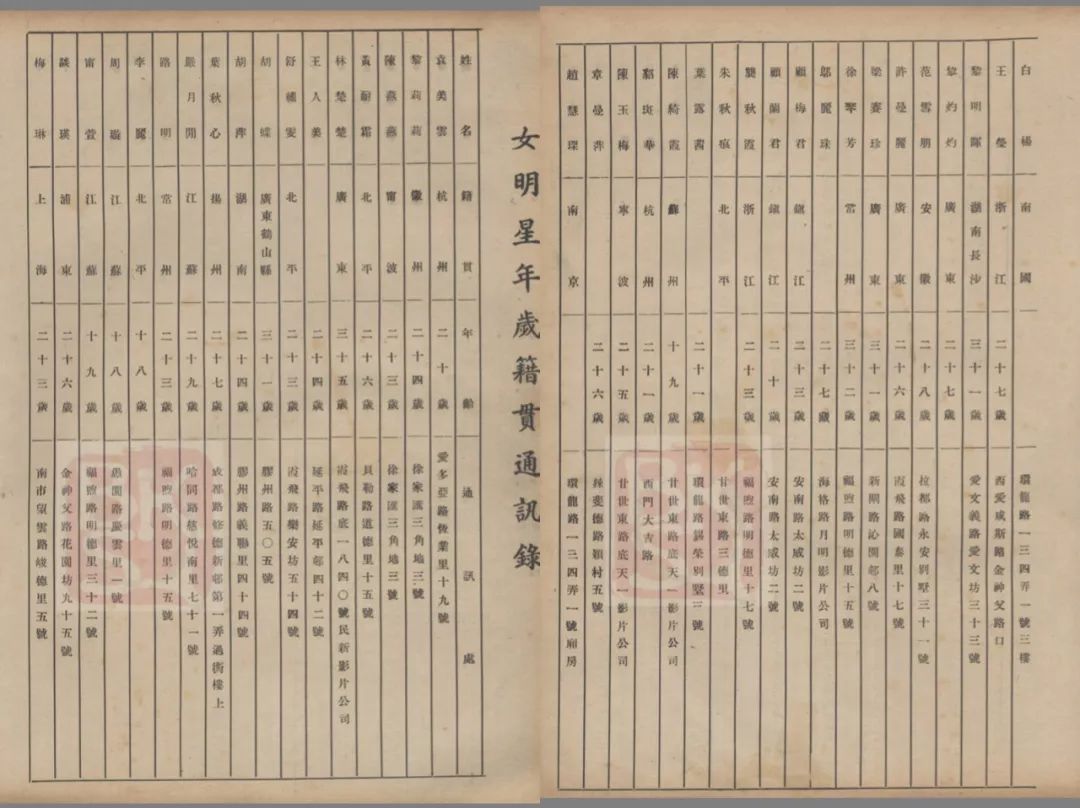 女明星年歲籍貫通訊錄
姓名 籍貫 年齡 通訊處
袁美雲 杭州 二十歲 愛多亞路恆業里十九號
黎莉莉 徽州 二十四歲 徐家匯三角地三號
陳燕燕 甯波 二十三歲 徐家匯三角地三號
黃耐霜 北平 二十六歲 貝勒路道德里十五號
林楚楚 廣東 三十五歲 霞飛路底一八四〇號民新影片公司
王人美 二十四歲 延平路延平邨四十二號
舒繡雯 北平 二十三歲 霞飛路樂安坊五十四號
胡蝶 廣東鶴山縣 三十一歲 膠州路五〇五號
胡萍 湖南 二十四歲 膠州路義聯里四十四號
葉秋心 揚州 二十七歲 成都路修德新邨第一弄過街樓上
嚴月閒 江蘇 二十九歲 哈同路慈悅南里七十一號
路明 常州 二十三歲 福煦路明德里十五號
李麗 北平 十八歲
周璇 江蘇 十八歲 愚園路慶雲里一號
甯萱 江蘇 十九歲 福煦路明德里三十二號
談瑛 浦東 二十六歲 金神父路花園坊九十五號
梅琳 上海 二十三歲 南市望雲路峻德里五號
白楊 南國 環龍路一三四弄一號三樓
王瑩 浙江 二十七歲 西愛咸斯路金神父路口
黎明暉 湖南長沙 三十一歲 愛文義路愛文坊三十三號
黎灼灼 廣東 二十七歲
范雪朋 安徽 二十八歲 拉都路永安別墅三十一號
許曼麗 廣東 二十六歲 霞飛路國泰里十七號
梁賽珍 廣東 三十一歲 新閘路沁園邨八號
徐琴芳 常州 三十二歲 福煦路明德里十五號
鄔麗珠 二十七歲 海格路月明影片公司
顧梅君 鎮江 二十三歲 安南路太咸坊二號
顧蘭君 鎮江 二十歲 安南路太咸坊二號
龔秋霞 浙江 二十三歲 福煦路明德里十七號
朱秋痕 北平 甘世東路三德里
葉露茜 二十一歲 環龍路錫榮別墅三號
陳綺霞 蘇州 十九歲 甘世東路底天一影片公司
貂斑華 杭州 二十一歲 西門大吉路
陳玉梅 寧波 二十五歲 甘世東路底天一影片公司
章曼萍 二十六歲 辣斐德路穎村五號
趙慧琛 南京 環龍路一三四弄一號廂房